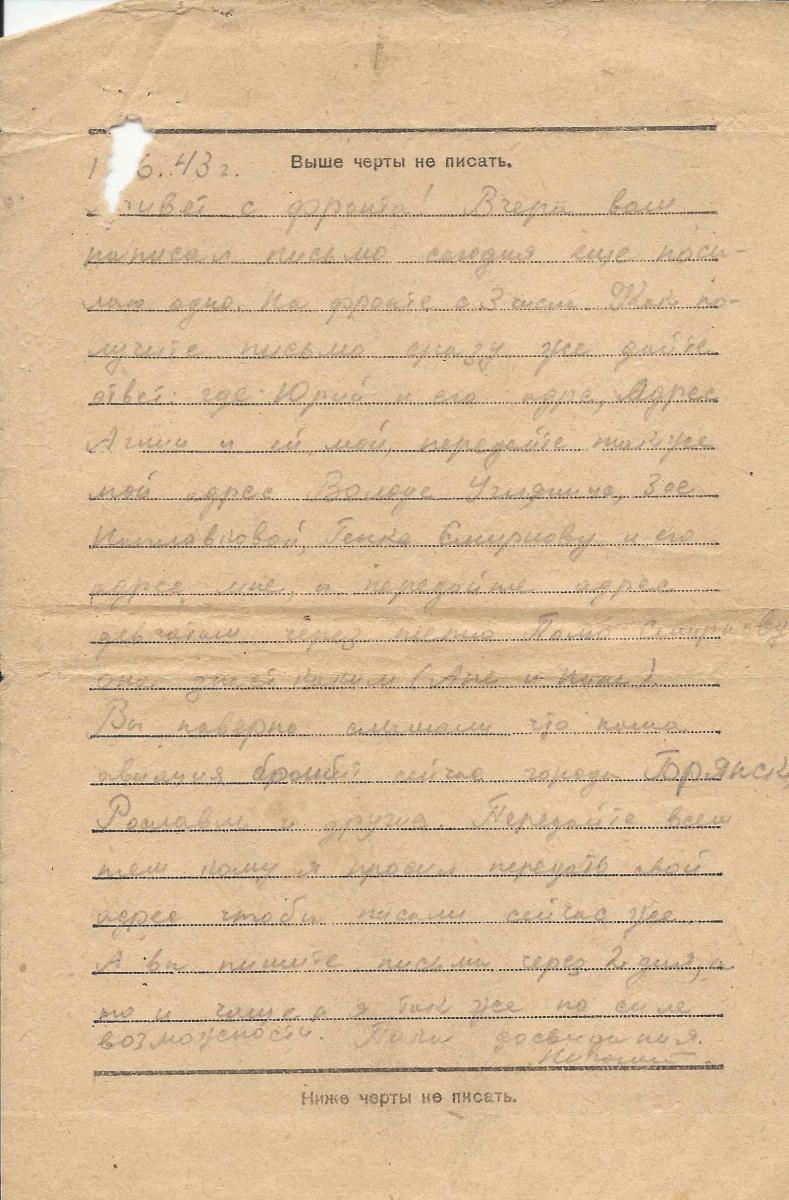 6.43 г. Выше черты не писать.
с фронта! Вчера вам
написал письмо сегодня еще посы-
лаю одно. На фронте с 3 числа. Как по-
лучите письмо сразу же дайте
ответ: где Юрий и его адрс, Адрес
и ей мой, передайте также
мой адрес Володе Зое
Генка Смирнову и его
адрес мне, а передайте адрес
девчатам через Смирнову
она
Вы наверно слышали что наша
авиация бромбит сейчас города Брянск,
Рославль и другия. Передайте всем
тем кому я просил передать свой
адрес чтобы писали сейчас же.
А вы пишите письма через 2 дня, а
то и чаще а я так же по силе
возможности. Пока досвидания.
Ниже черты не писать.